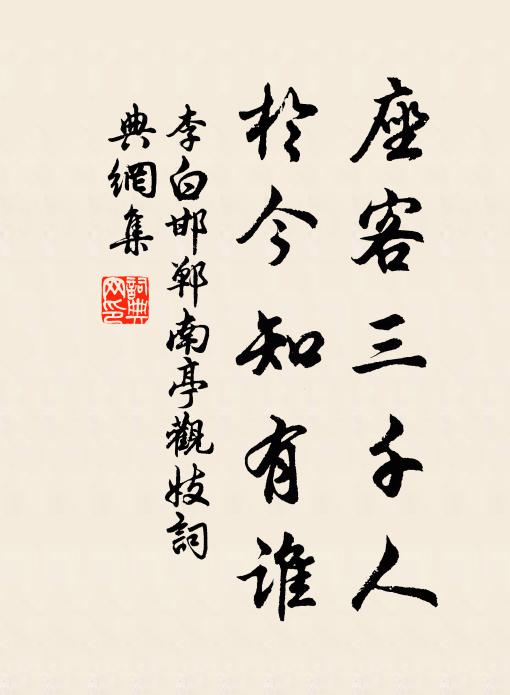 座客三千人
於今知有誰
李白邯鄲南亭觀妓詞
典網集
詞典網印